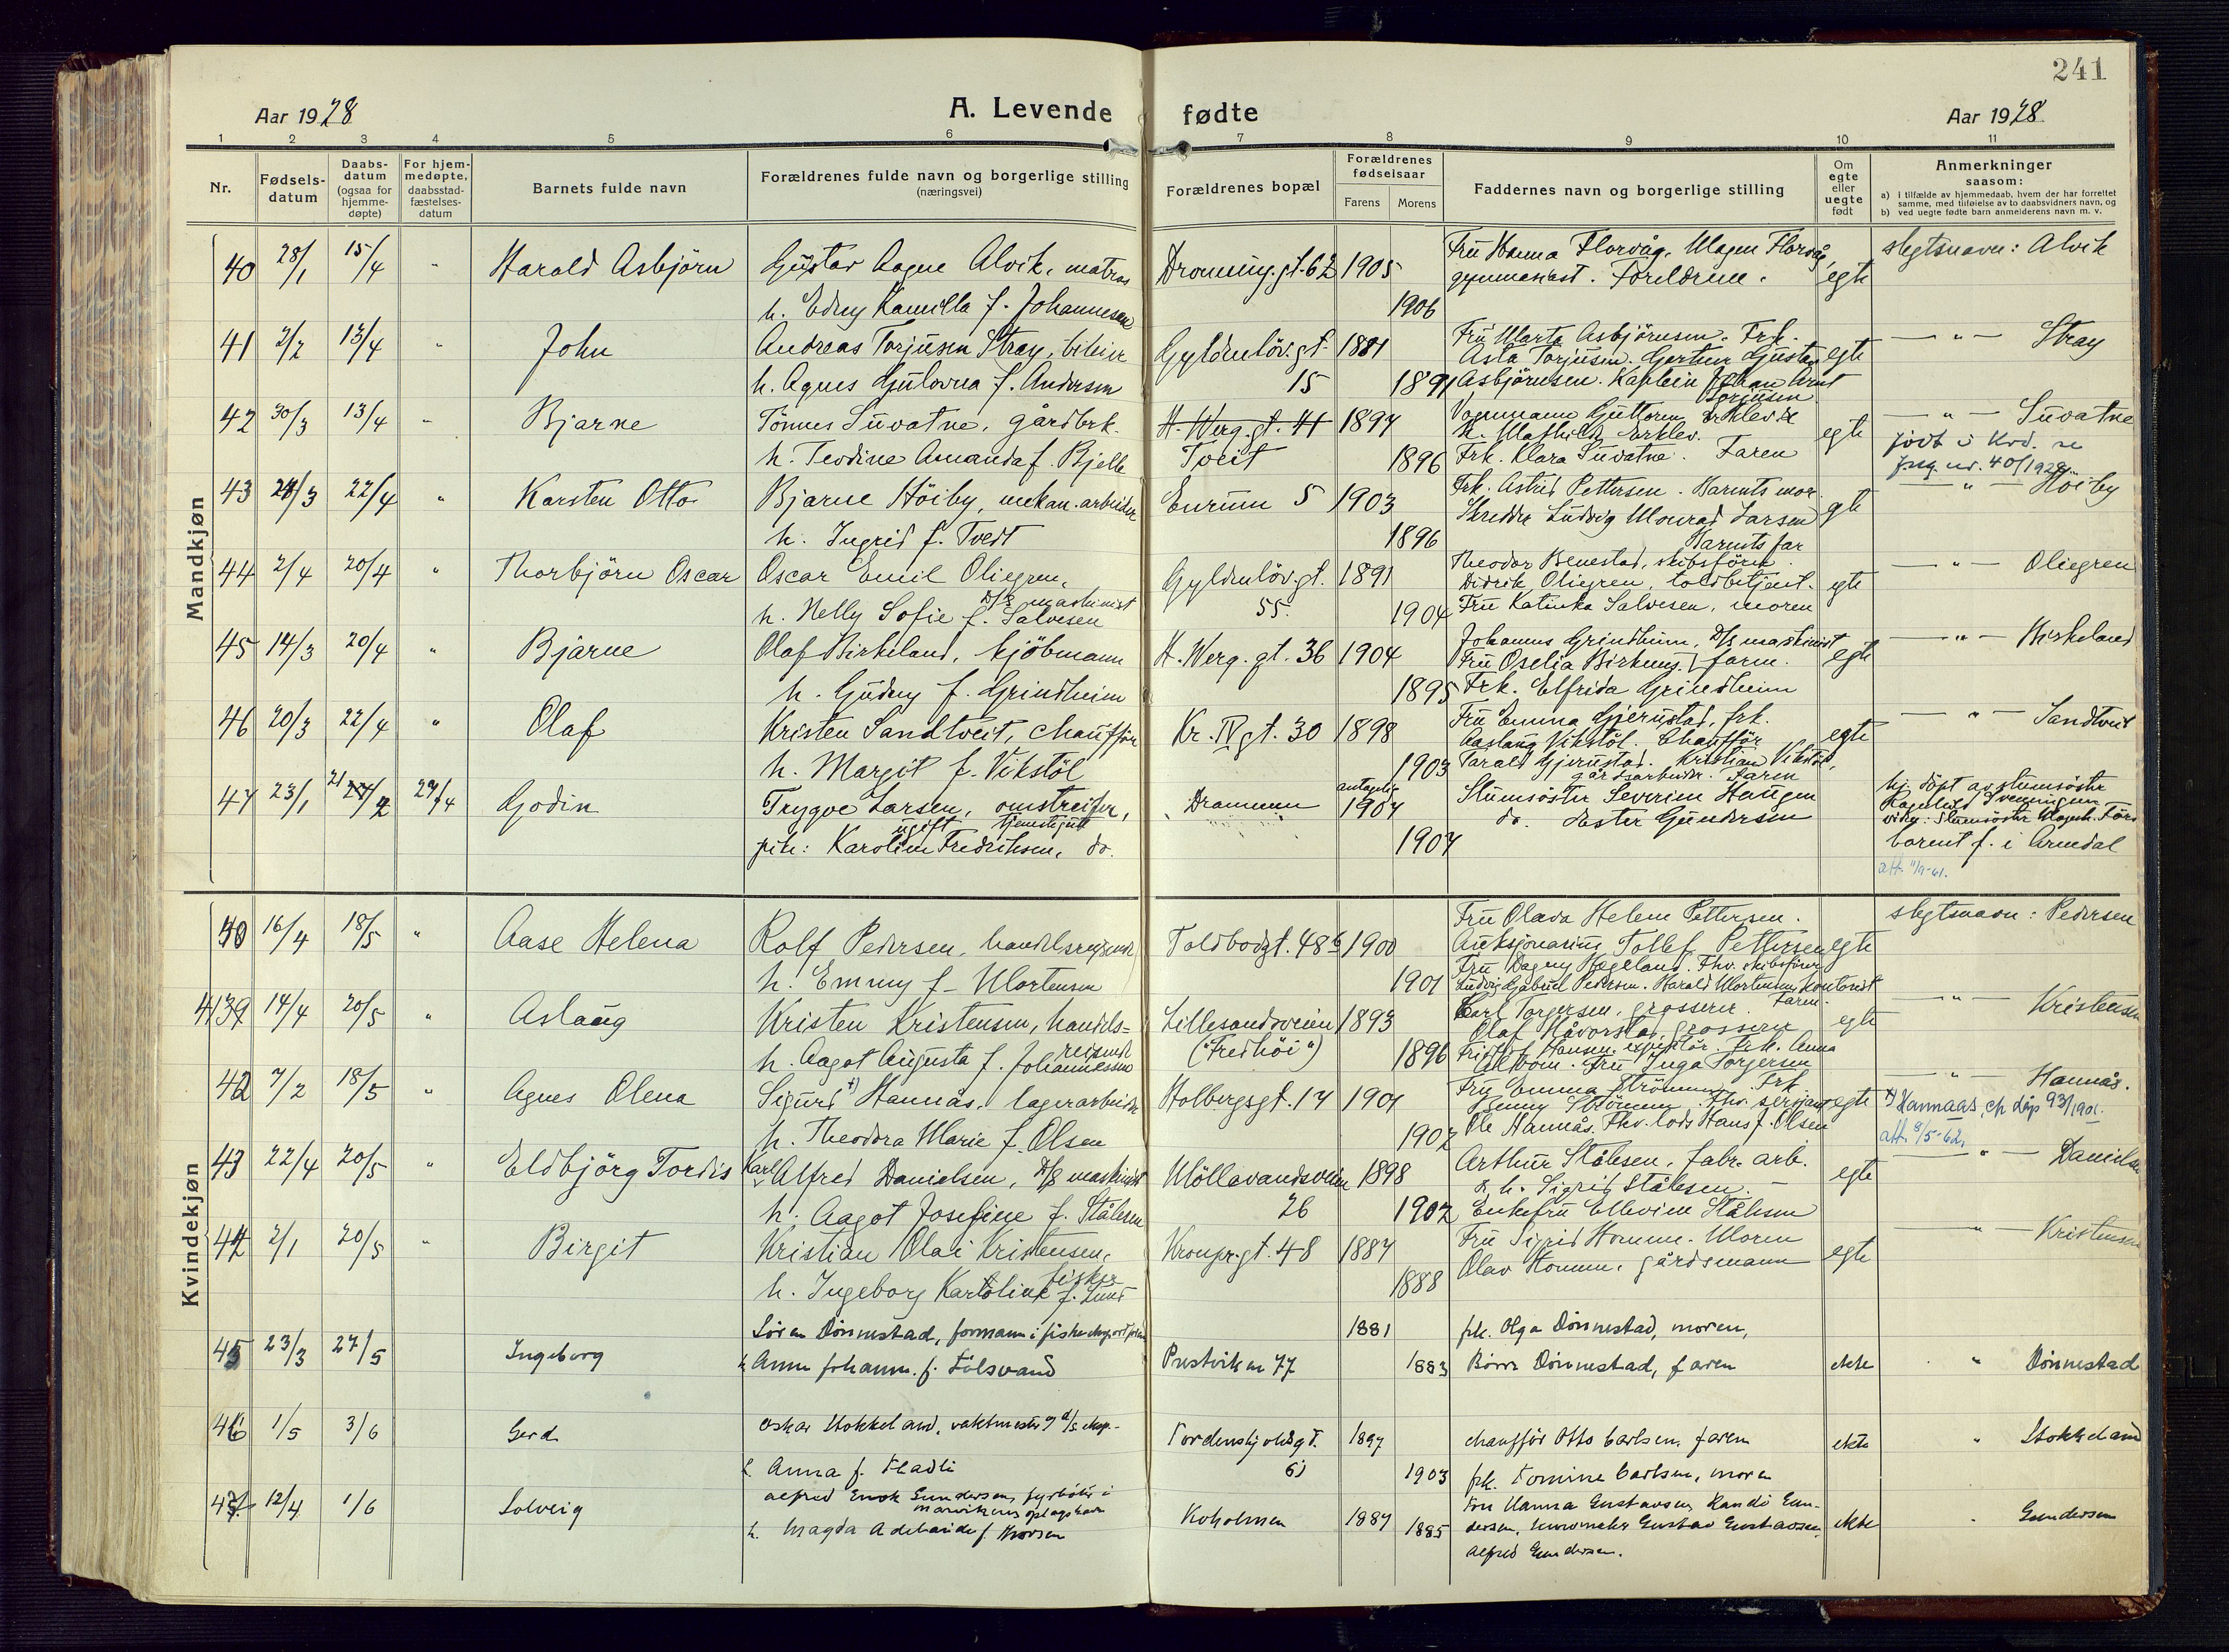 241
Aar 1928
A. Levende fødte
Aar 1928
1 2 3 4 5 6 7 8 9 10 11
Nr.
Fødsels-datum
Daabs-datum (ogsaa for hjemme-døpte)
For hjem-medøpte, daabsstad-fæstelses-datum
Barnets fulde navn
Forældrenes fulde navn og borgerlige stilling (næringsvei)
Forældrenes bopæl
Forældrenes fødselsaar
Farens Morens
Faddernes navn og borgerlige stilling
Om egte eller uegte født
Anmerkninger
saasom:
a) i tilfælde av hjemmedaab, hvem der har forrettet samme, med tilføielse av to daabsvidners navn, og
b) ved uegte fødte barn anmelderens navn m. v.
Mandkjøn
40 28/1 15/4 " Harald Asbjörn Gustav Aagne Alvik, matros Dronning.gt. 62 1905 Fru Hanna Florvåg. Magen Florvåg, egte slegtsnavn: Alvik
h. Edny Kamilla f. Johannesen 1906 gymnasiast. Foreldrene.
41 2/2 13/4 " John Andreas Torjusen Stray, bileier Gyldenlöv.gt. 1881 Fru Marta Asbjörnsen. Frk. egte — " — Stray
h. Agnes Gulovna f. Andersen 15 1891 Asta Torjusen. Gartner Gustav
Asbjörnsen. Kaptein Johan Arnt Torjusen
42 30/3 13/4 " Bjarne Tönnes Suvatne, gårdbrk. H. Werg. gt. 41 1894 Vognmann Guttorm Erklev & egte — " — Suvatne
h. Teodine Amanda f. Bjelle Tveit 1896 h. Mathilde Erklev. födt i Krd. se
Frk. Klara Suvatne. Faren nr. 40/1928.
43 24/3 22/4 " Karsten Otto Bjarne Höiby, mekan. arbeider Enrum 5 1903 Frk. Astrid Pettersen. Barnets mor. egte — " — Höiby
h. Ingrid f. Tvedt 1896 Skredder Ludvig Monrad Larsen
Barnets far
44 2/4 20/4 " Thorbjörn Oscar Oscar Emil Oliegren, Gyldenlöv.gt. 1891 Theodor Benestad, skibsförer. egte — " — Oliegren
D/S maskinist 55. Didrik Oliegren, toldbetjent.
h. Nelly Sofie f. Salvesen 1904 Fru Katinka Salvesen, moren
45 14/3 20/4 " Bjarne Olaf Birkeland, kjöbmann H. Werg. gt. 36 1904 Johannes Grindheim, D/S maskinist egte — " — Birkeland
h. Gudny f. Grindheim 1895 Fru Oselia Birkenes. faren.
Frk. Elfrida Grindheim
46 20/3 22/4 " Olaf Kristen Sandtveit, chaufför Kr. IV gt. 30 1898 Fru Emma Gjerustad, frk. egte — " — Sandtveit
h. Margit f. Vikstöl 1903 Aaslaug Vikstöl. Chaufför
Tarald Gjerustad. Kristian Vikstöl,
gårdsarbeider. Faren
47 23/1 21 24/2 29/4 Godin Trygve Larsen, omstreifer, Drammen antagelig 1904 Slumsöster Severine Haugen hj. döpt av slumsöster
ugift tjenestejent do. Ester Gundersen Ragnhild Svenningsen
pike: Karoline Fredriksen, do. 1904 vidn: Slumsöster
barnet f. i Arendal
att. 11/9-61.
Kvindekjøn
40 16/4 18/5 " Aase Helena Rolf Pedersen, handelsreisende Toldbodgt. 48b 1900 Fru Olava Helene Pettersen. egte slegtsnavn: Pedersen
h. Emmy f. Mortensen 1901 Auksjonarius Tollef Pettersen
Fru Dagny Hægeland. Fhv. skibsförer
Ludvig Gabriel Pedersen. Harald Mortensen, kontorist
Faren.
41 14/4 20/5 " Aslaug Kristen Kristensen, handels= Lillesandsveien 1893 Carl Torgersen, grosserer. egte — " — Kristensen
reisende ("Fredhöi") Olaf Håvorstad, grosserer
h. Aagot Augusta f. Johannessen 1896 Fridtjof Hansen, expeditör. Frk. Anna
Fru Inga Torgersen
42 7/2 18/5 " Agnes Olena Sigurd x) Hannås, lagerarbeider Holbergsgt. 17 1901 Fru Emma Strömme. Frk. egte — " — Hannås.
h. Theodora Marie f. Olsen 1902 Jenny Strömme. Fhv. sersjant x) Hannaas, cfr dåp 93/1901.
Ole Hannås. Fhv. lods Hans J. Olsen att. 8/5-62.
43 22/4 20/5 " Eldbjörg Tordis Karl Alfred Danielsen, D/S maskinist Möllevandsveien 1898 Arthur Stålesen, fabr. arb. egte — " — Danielsen
h. Aagot Josefine f. Stålesen 26 1902 & h. Sigrid Stålesen. —
Enkefru Ellevine Stålesen
44 2/1 20/5 " Birgit Kristian Olai Kristensen, Kronpr.gt. 48 1887 Fru Sigrid Homme. Moren egte — " — Kristensen
fisker
h. Ingeborg Karoline f. Lund 1888 Olav Homme, gårdsmann
45 23/3 27/5 Ingeborg Sören Dönnestad, formann i fiskeeksportforr. 1881 frk. Olga Dönnestad, moren,
h. Anne Johanne f. Fölsvand Prestviken 77 1883 Börre Dönnestad, faren ekte " Dönnestad
46 1/5 3/6 Gerd Oskar Stokkeland, vaktmester Tordenskjoldsgt. 1897 chaufför Otto Carlsen, faren ekte " Stokkeland
h. Anna f. Fladli 61 1903 frk. Tomine Carlsen, moren
47 12/4 1/6 Solveig Alfred Enok Gundersen, fyrböter i Kuholmen 1887 Fru Hanna Gustavsen, Randi Gun- ekte " Gundersen
Marvikens oplagshavn 1885 dersen, Gustav Gustavsen
h. Magda Adelaide f. Alfred Gundersen.